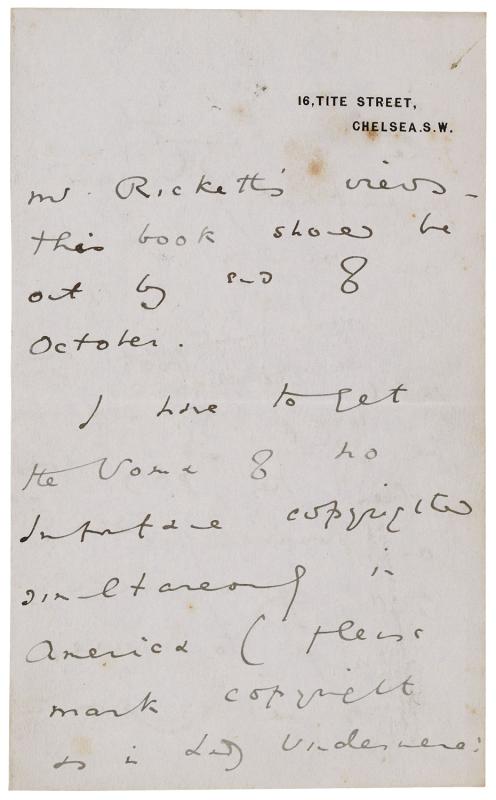 16, TITE STREET,
CHELSEA. S.W.
Mr. Ricketts's views –
this book should be
out by end of
October.
I have to get
the Woman of no
Importance copyrighted
simultaneously in
America (please
mark copyright
as in Lady Windermere: